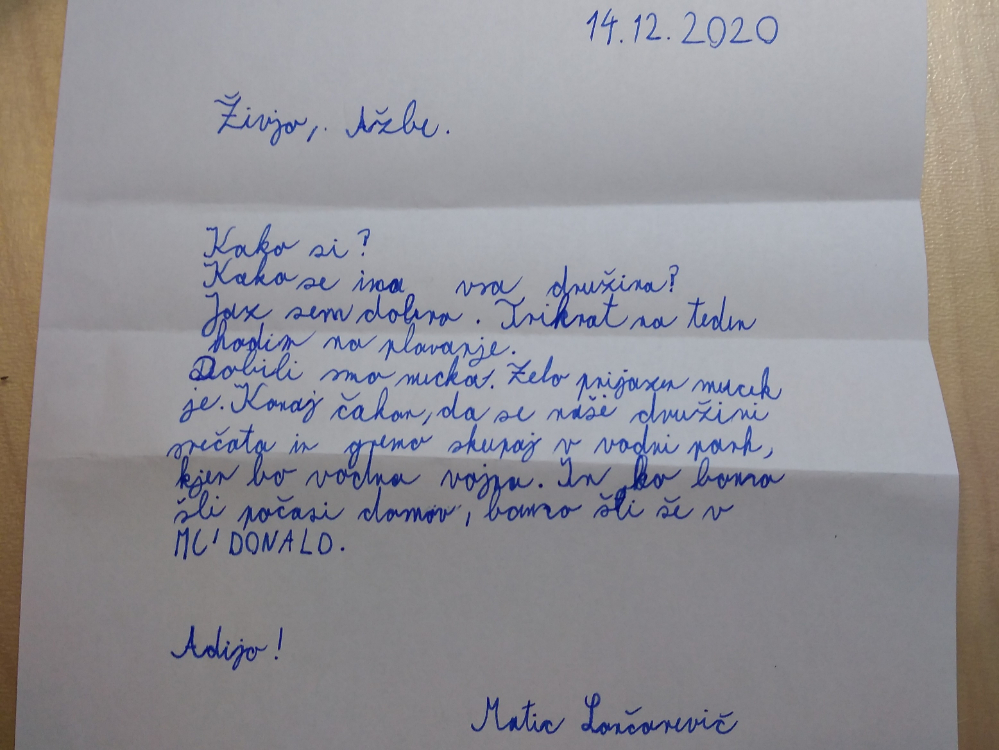 14.12.2020
Živjo, Ažbe.
Kako si?
Kako se ima vsa družina?
Jaz sem dobro. Trikrat na teden
hodim na plavanje.
Dobili smo mucka. Zelo prijazen mucek
je. Komaj čakam, da se naše družini
srečata in gremo skupaj v vodni park,
kjer bo vodna vojna. In ko bomo
šli počasi domov, bomo šli še v
MC'DONALD.
Adijo!
Matic Lončarevič